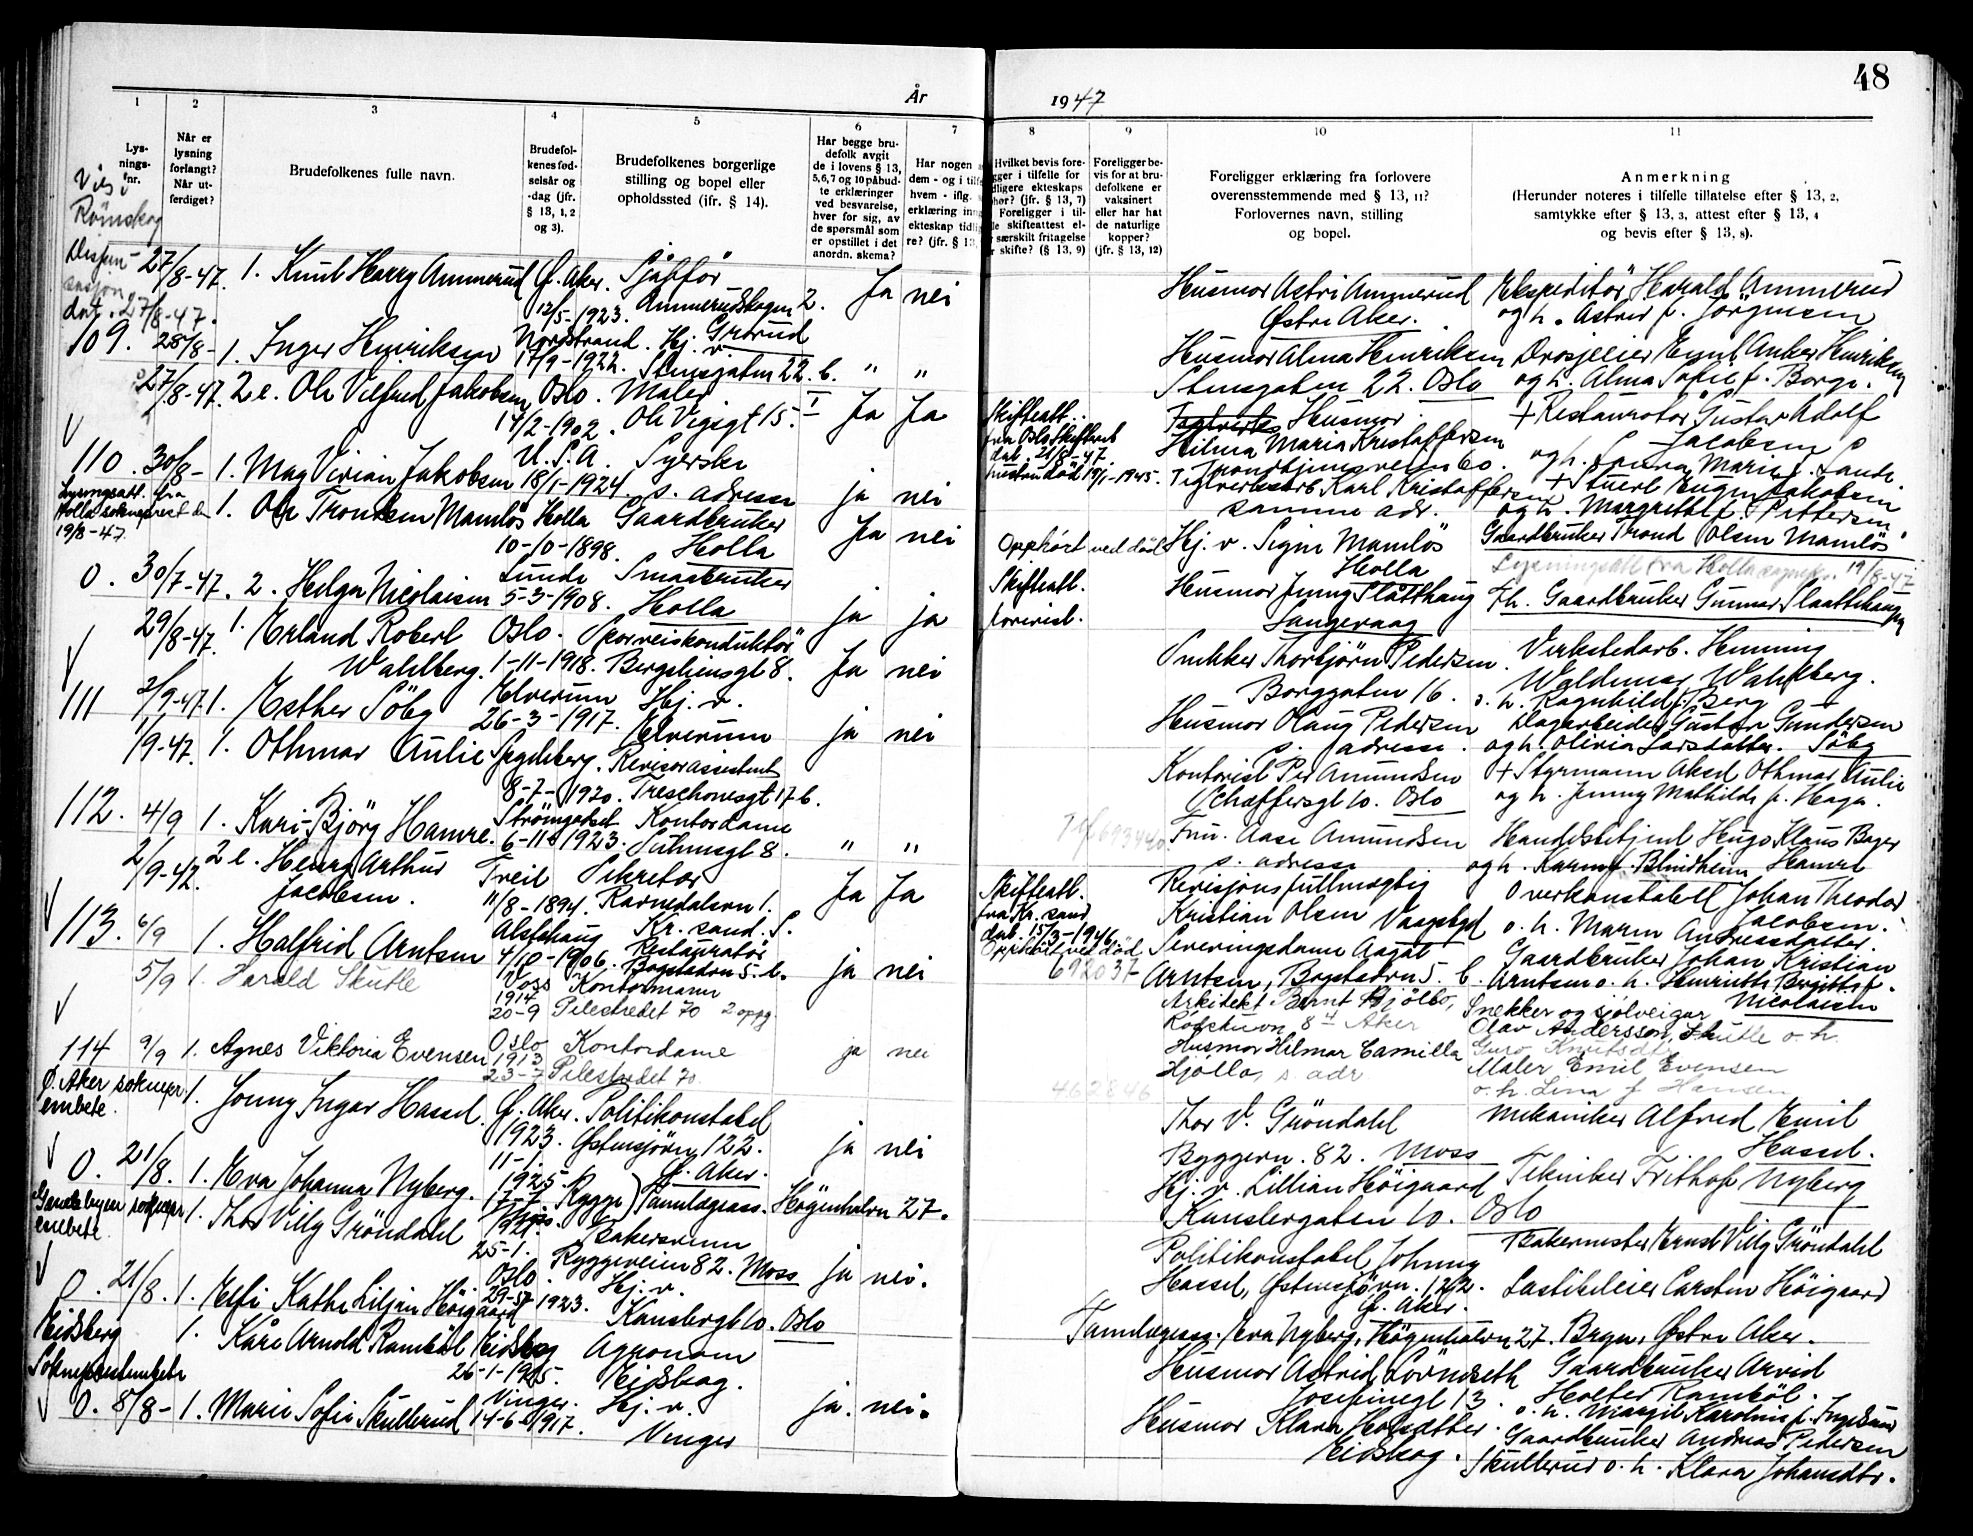 48
År
1947
1
2
3
4
5
6
7
8
9
10
11
Lys-
nings-
nr.
Når er
lysning
forlangt?
Når ut-
ferdiget?
Brudefolkenes fulle navn.
Brudefol-
kenes fød-
selsår og
-dag (jfr.
§ 13, 1, 2
og 3).
Brudefolkenes borgerlige
stilling og bopel eller
opholdssted (ifr. § 14).
Har begge bru-
defolk avgit
de i lovens § 13,
5,6,7 og 10 påbud-
te erklæringer
ved besvarelse,
hver for sig, av
de spørsmål som
er opstillet i det
anordn. skema?
Har nogen
dem - og i tilf
hvem - iflg.
erklæring inng
ekteskap tidlig
re? (jfr. § 13,
Hvilket bevis fore-
gger i tilfelle for
dligere ekteskaps
hør? (jfr. § 13, 7)
Foreligger i til-
le skifteattest el-
r særskilt fritagelse
skifte? (§ 13, 9)
Foreligger be-
vis for at bru-
defolkene er
vaksinert
eller har hat
de naturlige
kopper?
(jfr. § 13, 12)
Foreligger erklæring fra forlovere
overensstemmende med § 13, 11?
Forlovernes navn, stilling
og bopel.
Anmerkning
(Herunder noteres i tilfelle tillatelse efter § 13, 2,
samtykke efter § 13, 3, attest efter § 13, 4
og bevis efter § 13, 8).
Vies i
Römskog
dat. 27/8-47.
27/8-47. 1. Knut Harry Ammerud Ø. Aker. Sjåffør
12/5-1923. Ammerudskogen 2. Ja nei
Husmor Astri Ammerud
Østre Aker.
Ekspeditör Harald Ammerud
og h. Astrid f. Jörgensen
109. 28/8- 1. Inger Henriksen Nordstrand. Hj. v. Grorud
17/9-1922. Stensgaten 22. b. " "
Husmor Alma Henriksen
Stensgaten 22. Oslo
Drosjeeier Emil Anker Henriksen
og h. Alma Sofie f. Borge.
27/8-47. 2 e. Ole Vilfred Jakobsen Oslo. Maler
14/2-1902. Ole Vigsgt 15. I Ja Ja
Skifteatt.
fra Oslo Skifterett
dat. 21/8-47
hustru död 19/1-1945.
Husmor
Hilma Maria Kristoffersen
Trondhjemsveien 60.
+ Restauratör Gustav Adolf
Jacobsen
110. 30/8- 1. May Vivian Jakobsen U. S. A. Syerske
18/1-1924. s. adresse ja nei
Teglverksarb Karl Kristoffersen
samme adr.
+ Stuert Eugen Jakobsen
og h. Margrethe f. Pettersen
Lysingsatt. fra
Holla sokneprest den
19/8-47.
1. Ole Trondsen Mamlös Holla Gaardbruker
10-10-1898. Holla Ja nei
Opphört ved död
Hj. v. Signe Mamlös
Holla
Gaardbruker Trond Olsen Mamlös
Lysningsatt fra Holla sognepr. 19/8-47
0. 30/7-47. 2. Helga Nicolaisen Lunde Smaabruker
5-3-1908. Holla ja ja
Skifteatt.
forevist.
Husmor Jenny Slatthaug
Langevaag
Fh. Gaardbruker Gunnar Slaatthaug
29/8-47. 1. Erland Robert Oslo. Sporveiskonduktör
Wahlberg. 1-11-1918. Bergsliensgt 8. Ja nei
Snekker Thorbjörn Pedersen
Borggaten 16.
Verkstedarb. Henning
Waldemar Wahlberg.
o. h. Ragnhild f. Berg
111 2/9-47 1. Esther Söby Elverum Hj. v.
26-3-1917. Elverum ja nei
Husmor Olaug Pedersen
s. adresse.
Dagarbeider Gustav Gundersen
og h. Olivia Larsdatter. Söby
1/9-47. 1. Othmar Aulie Spydeberg. Revisorassistent
8-7-1920. Treschowsgt 17 b.
Kontorist Per Amundsen
Schæffersgt 10. Oslo
+ Styrmann Aksel Othmar Aulie
og h. Jenny Mathilde f. Haga.
112. 4/9 1. Kari-Björg Hamre. Strömgodset Kontordame
6-11-1923. Suhmsgt 8. " "
Fru. Aase Amundsen
s. adresse
Handelsbetjent Hugo Klaus Bager
og h. Karen f. Blindheim Hamre
2/9-47. 2 e. Henry Arthur
Jacobsen. Tveit Sekretær
11/8-1894. Ravnedalsvn 1. Ja Ja
Kr. sand. S.
Skifteatt.
fra Kr. sand
dat. 15/3-1946
Opphört ved död.
692037
Revisjonsfullmegtig
Kristian Olsen Vaagsbygd
Overkonstabell Johan Theodor
Jacobsen.
o. h. Maren Andreasdatter.
113. 6/9 1. Halfrid Arntsen Alstahaug Restauratör
4/10-1906. Bogstadvn 5. b. ja nei
Serveringsdame Aagot
Arntsen, Bogstadvn 5. b.
Gaardbruker Johan Kristian
Arntsen o. h. Henriette Bergitte f.
Nicolaisen
5/9 1. Harald Skutle Voss Kontormann
1914
20-9 Pilestredet 70 2 oppg.
Arkitekt Bernt Hjöllo,
8 Aker
Snekker og sjölveigar
Olav Andersson Skutle o. h.
Guro Knutsdtr
114 9/9 1. Agnes Viktoria Evensen Oslo Kontordame
1913
23-7 Pilestredet 70. ja nei
Husmor Hilmar Camilla
Hjöllo, s. adr
462846
Maler Emil Evensen
o. h. Lina f Hansen
Ø. Aker soknepr
embete.
1. Jonny Ingar Hassel. Ø. Aker. Politikonstabel
1923. Østensjövn 122.
11-1. Ø. Aker. ja nei
Thor V. Gröndahl
Byggevn. 82. Moss
Mekaniker Alfred Emil
Hassel.
0. 21/8. 1. Eva Johanna Nyberg. 1925. Rygge Tannlegeass. Høgenhalvn 27.
17-7
Hj. v. Lillian Höigaard
Kansbergaten 10. Oslo
Tekniker Frithof Nyberg
embete.
1. Thor Villy Gröndahl
25-1. Bakersvenn
Ryggeveien 82. Moss ja nei.
Politikonstabel Johnny
Hassel, Østensjövn. 122.
Ø. Aker.
Bakermester Ernst Villy Gröndahl
0. 21/8. 1. Elfi Kathe Liljan Höigaard Oslo. Hj. v.
1923. Kansbergt 10. Oslo
Tannlegeass. Eva Nyberg, Høgenhalvn 27. Bryn, Østre Aker.
Lastebileier Carsten Höigaard
Eidsberg
Sokneprestembete
1. Kåre Arnold Ramböl Eidskog Agronom
26-1-1915. Eidskog.
Husmor Astrid Lövnseth
Josefinegt 13.
Gaardbruker Arvid
Holter Ramböl.
o. h. Margit Karoline f. Ingelsrud
0. 8/8- 1. Marie Sofie Skullerud Vinger. Hj. v.
14-6-1917. Vinger ja. nei.
Husmor Klara
Eidskog.
Gaardbruker Andreas Pedersen
Skullerud o. h. Klara Johansdtr.